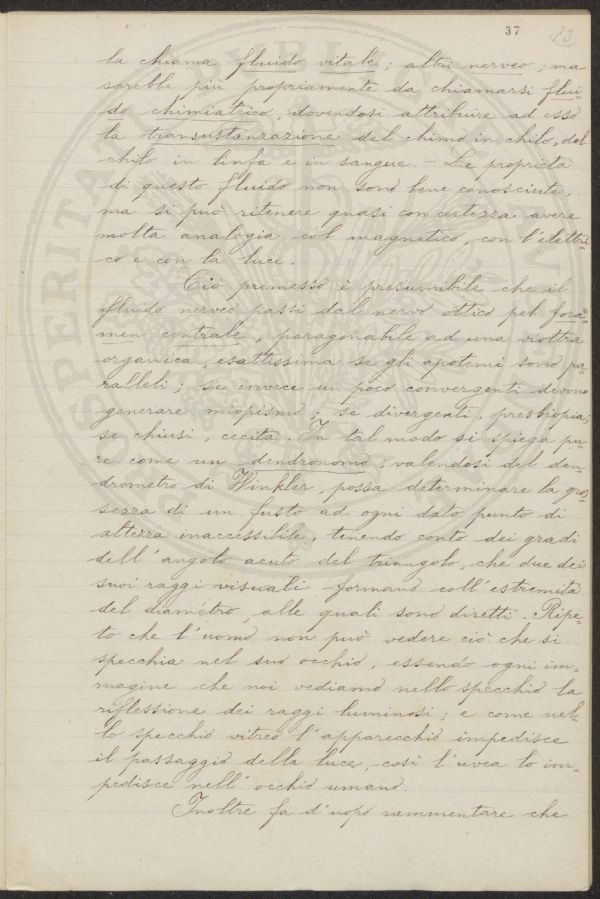 37 23
la chiama fluido vitale; altri nerveo; ma
sarebbe più propriamente da chiamarsi flui-
do chimiatrico, dovendosi attribuire ad esso
la transustanzazione del chimo in chilo, del
chilo in linfa e in sangue. – Le proprietà
di questo fluido non sono bene conosciute,
ma si può ritenere quasi con certezza avere
molta analogia col magnetico, con l'elettri-
co e con la luce.
Ciò premesso è presumibile che il
fluido nerveo passi dal nervo ottico pel fora-
men centrale, paragonabile ad una
organica, esattissima se gli apotemi sono pa-
ralleli; se invece un poco convergenti devono
generare miopismo; se divergenti, presbiopia;
se chiusi, cecità. In tal modo si spiega pu-
re come un dendronomo, valendosi del den-
drometro di Winkler, possa determinare la gros-
sezza di un fusto ad ogni dato punto di
altezza inaccessibile, tenendo conto dei gradi
dell'angolo acuto del triangolo, che due dei
suoi raggi visuali formano coll'estremità
del diametro, alle quali sono diretti. Ripe-
to che l'uomo non può vedere ciò che si
specchia nel suo occhio, essendo ogni im-
magine che noi vediamo nello specchio la
riflessione dei raggi luminosi; e come nel-
lo specchio vitreo l'apparecchio impedisce
il passaggio della luce, così l'uvea lo im-
pedisce nell'occhio umano.
Inoltre fa d'uopo rammentare che